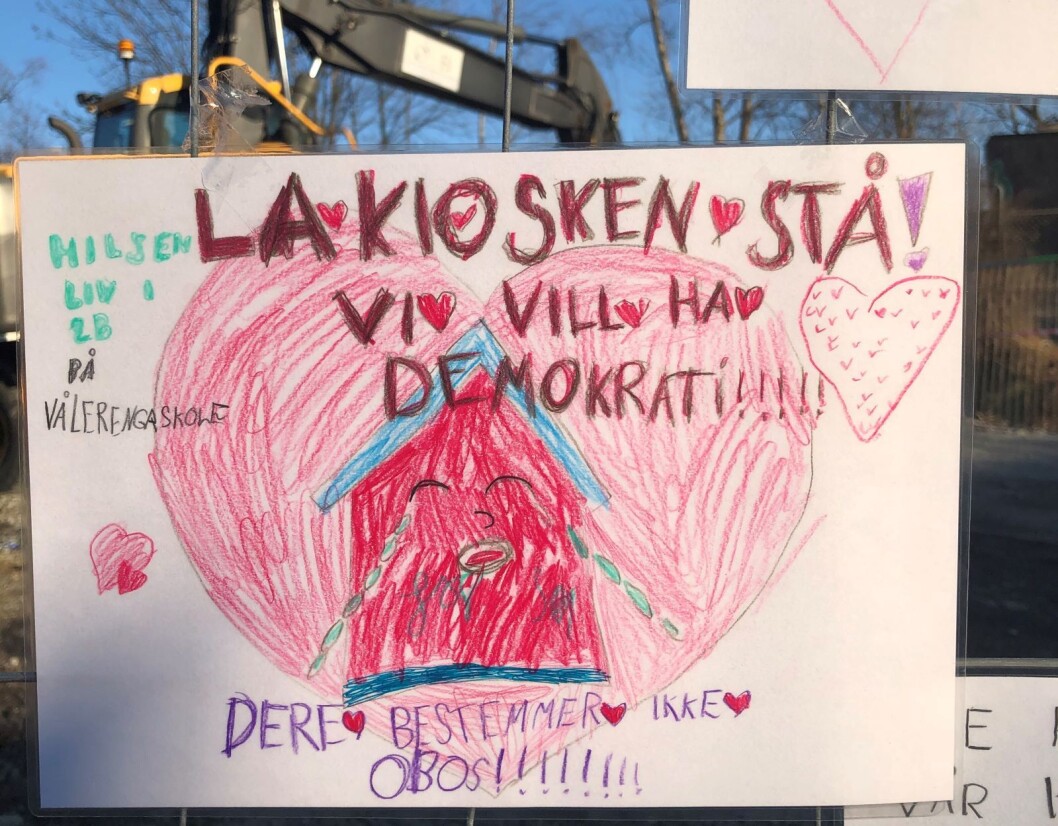 LA KIOSKEN STÅ!
VI VILL HA
DEMOKRATi!!!!!
HILSEN
LIV I
2B
PÅ
VÅLERENGA SKOLE
DERE BESTEMMER IKKE
OBOS!!!!!!!!
E
VÅR